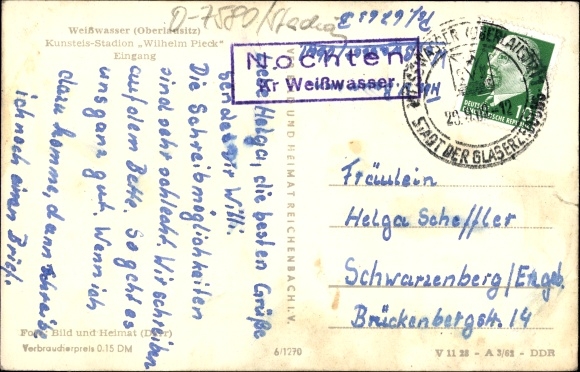 D-7580/Stadion
Weißwasser (Oberlausitz)
Kunsteis-Stadion „Wilhelm Pieck"
Eingang
Nochten
Kr Weißwasser
WEISSWASSER (OBERLAUSITZ)
STADT DER GLASERZEUGUNG
DEUTSCHE
DEMOKRATISCHE REPUBLIK
15
Liebe Helga, die besten Grüße
sendet dir Willi.
Die Schreibmöglichkeiten
sind sehr schlecht. Wir schreiben
auf dem Bette. So geht es
uns ganz gut. Wenn ich
dazu komme, dann schreibe
ich noch einen Brief.
Fräulein
Helga Scheffler
Schwarzenberg/Erzgeb.
Brückenbergstr. 14
BILD UND HEIMAT REICHENBACH I. V.
Foto: Bild und Heimat (Darr)
Verbraucherpreis 0.15 DM
6/1270
V 11 28 - A 3/62 - DDR